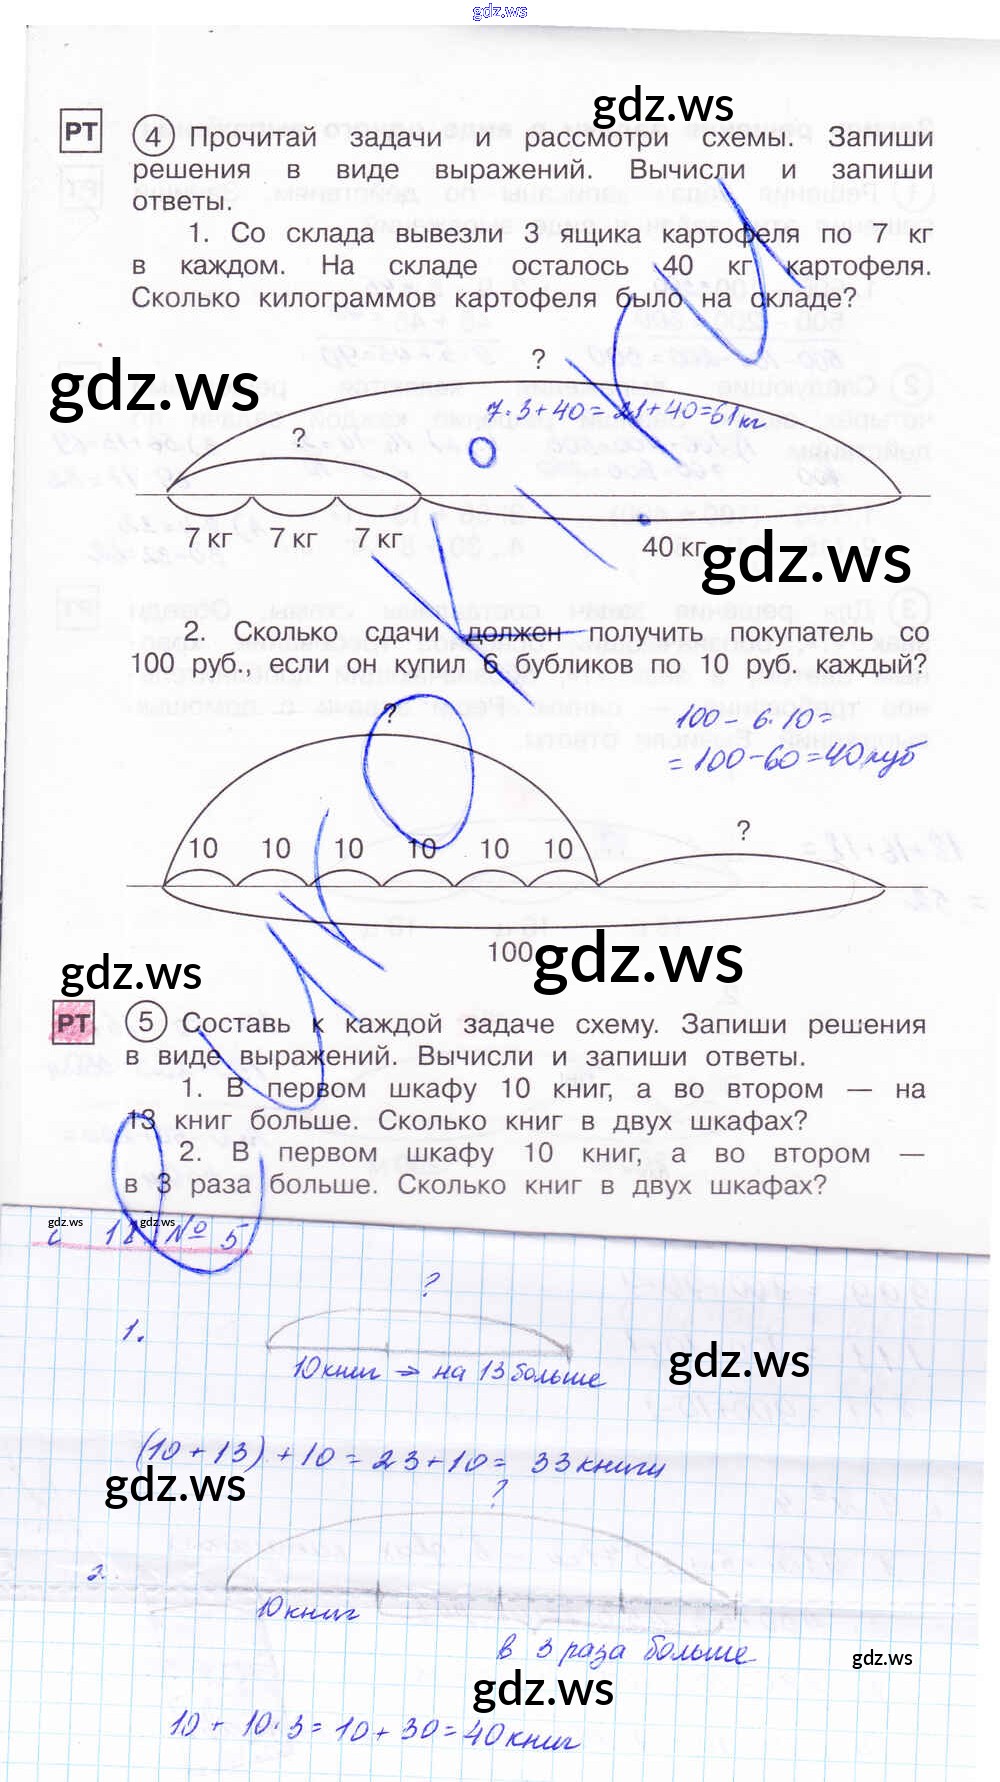 gdz.ws
gdz.ws
РТ 4 Прочитай задачи и рассмотри схемы. Запиши
решения в виде выражений. Вычисли и запиши
ответы.
1. Со склада вывезли 3 ящика картофеля по 7 кг
в каждом. На складе осталось 40 кг картофеля.
Сколько килограммов картофеля было на складе?
?
gdz.ws
7·3+40=21+40=61кг
?
7 кг 7 кг 7 кг 40 кг
gdz.ws
2. Сколько сдачи должен получить покупатель со
100 руб., если он купил 6 бубликов по 10 руб. каждый?
?
100-6·10=
=100-60=40руб
?
10 10 10 10 10 10
100
gdz.ws
gdz.ws
РТ 5 Составь к каждой задаче схему. Запиши решения
в виде выражений. Вычисли и запиши ответы.
1. В первом шкафу 10 книг, а во втором — на
13 книг больше. Сколько книг в двух шкафах?
2. В первом шкафу 10 книг, а во втором —
в 3 раза больше. Сколько книг в двух шкафах?
gdz.ws gdz.ws
с № 5
?
1.
gdz.ws
10книг → на 13 больше
(10+13)+10=23+10= 33книги
gdz.ws
?
2.
10книг
в 3 раза больше
gdz.ws
gdz.ws
10+10·3=10+30=40книг